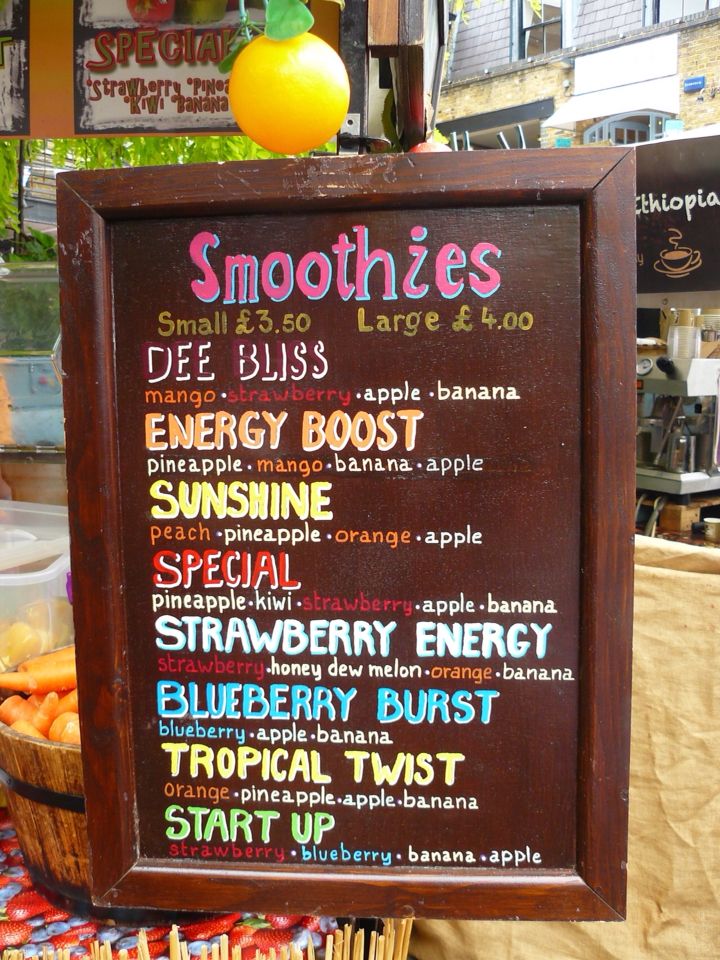 SPECIAL
Strawberry Pinea
Kiwi Banana
Ethiopia
Smoothies
Small £3.50 Large £4.00
DEE BLISS
mango · strawberry · apple · banana
ENERGY BOOST
pineapple · mango · banana · apple
SUNSHINE
peach · pineapple · orange · apple
SPECIAL
pineapple · kiwi · strawberry · apple · banana
STRAWBERRY ENERGY
strawberry · honey dew melon · orange · banana
BLUEBERRY BURST
blueberry · apple · banana
TROPICAL TWIST
orange · pineapple · apple · banana
START UP
strawberry · blueberry · banana · apple